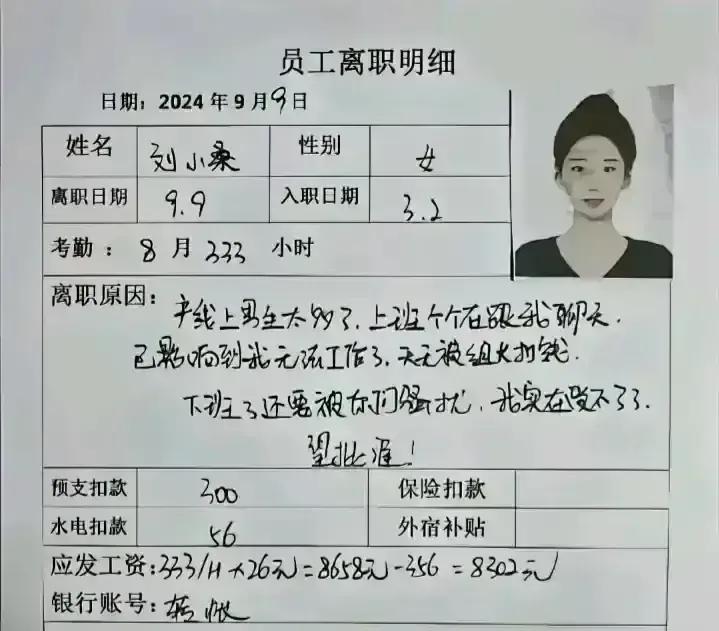 员工离职明细
日期：2024 年 9 月 9 日
姓名 刘小桑 性别 女
离职日期 9.9 入职日期 3.2
考勤 ： 8 月 333 小时
离职原因：产线上男生太多了，上班个个在跟我聊天．
已影响到我无法工作了，天天被组长扣钱．
下班了还要被你们骚扰，我实在受不了了．
望批准！
预支扣款 300 保险扣款
水电扣款 56 外宿补贴
应发工资：333/H×26元=8658元-356=8302元
银行账号：转帐